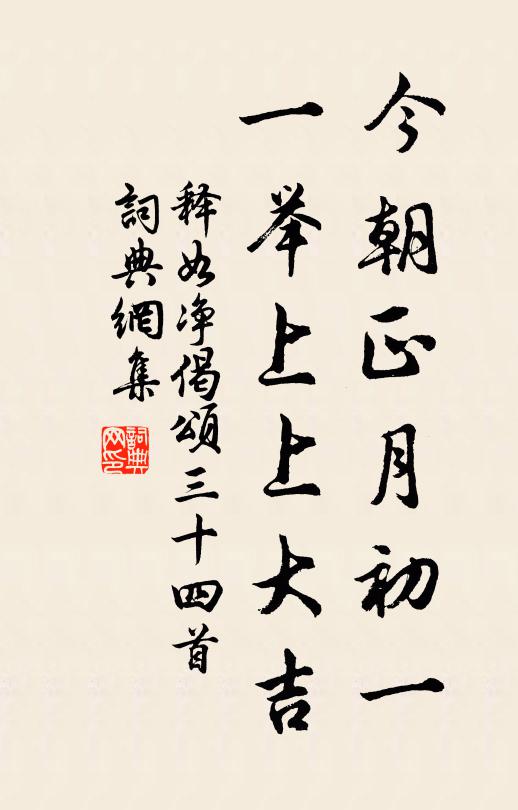 今朝正月初一
一举上上大吉
释如净偈頌三十四首
詞典網集
詞典网印